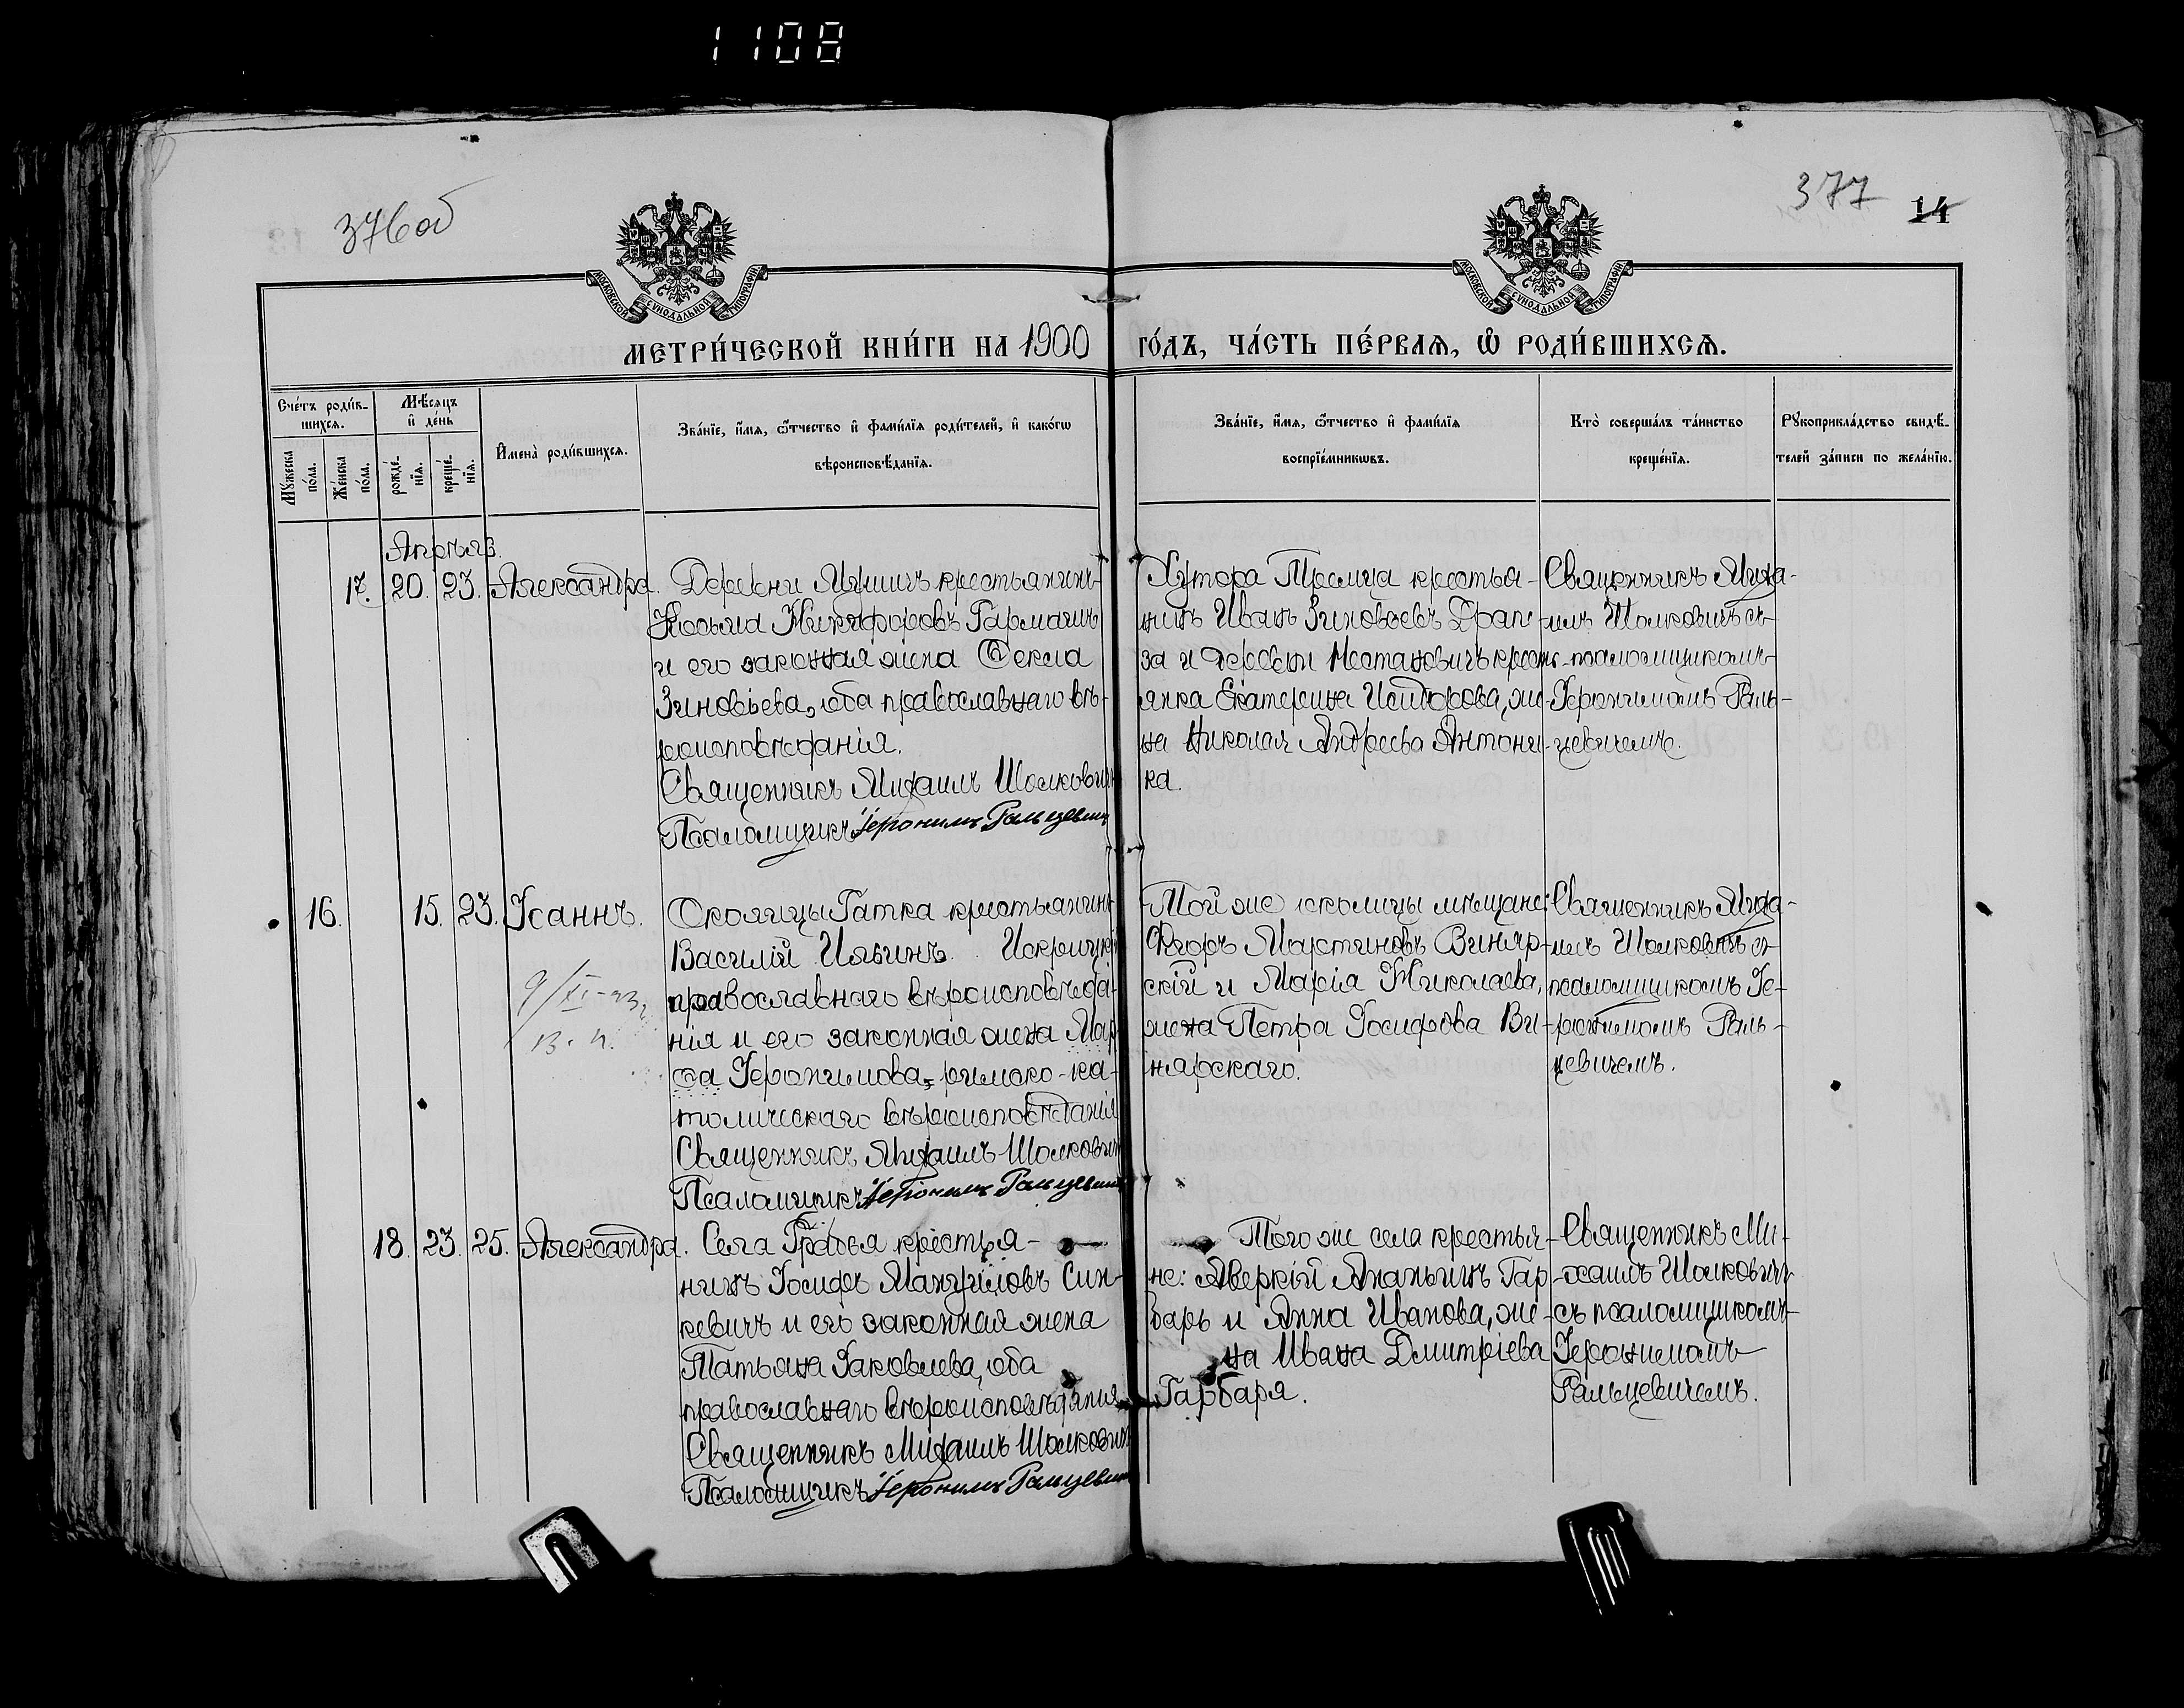 1108
376об
377
14
МОСКОВСКОЙ СУНОДАЛЬНОЙ ТИПОГРАФІИ
МОСКОВСКОЙ СУНОДАЛЬНОЙ ТИПОГРАФІИ
МЕТРИ́ЧЕСКОЙ КНИ́ГИ НА 1900 ГО́ДЪ, ЧА́СТЬ ПЕ́РВАѦ, Ѡ РОДИ́ВШИХСѦ.
Сче́тъ роди́в-
шихсѧ.
Мꙋ́жеска по́ла.
Же́нска по́ла.
Мѣ́сѧцъ
и҆ де́нь
рожде́-
нїѧ.
креще́-
нїѧ.
И҆мена̀ роди́вшихсѧ.
Зва́нїе, и҆́мѧ, ѻ҆́тчество и҆ фами́лїѧ роди́телей, и҆ како́гѡ
вѣроисповѣ́данїѧ.
Зва́нїе, и҆́мѧ, ѻ҆́тчество и҆ фами́лїѧ
воспрїе́мникѡвъ.
Кто̀ соверша́лъ та́инство
креще́нїѧ.
Рꙋкоприкла́дство свидѣ́-
телей за́писи по жела́нїю.
Апрѣля
17. 20. 23. Александра.
Деревни Яршичъ крестьянинъ
Косьма Никифоровъ Гармашъ
и его законная жена Ѳекла
Зиновіева, оба православнаго вѣ-
роисповѣданія.
Священникъ Михаилъ Шолковичъ
Псаломщикъ Іеронимъ Гальцевич
Хутора крестья-
нинъ Иванъ Зиновьевъ Драп-
за и деревни крестья-
янка Екатерина Исидорова, же-
на Николая Андреева Антони-
ка.
Священникъ Миха-
илъ Шолковичъ съ
псаломщикомъ
Іеронимомъ Галь-
цевичемъ.
16. 15. 23. Іоаннъ.
9/XI-23
в. н.
Околицы Гатка крестьянинъ
Василій Ильинъ Искрицкій
православнаго вѣроисповѣда-
нія и его законная жена Мар-
ѳа Іеронимова, римско-ка-
толическаго вѣроисповѣданія
Священникъ Михаилъ Шолкович
Псаломщикъ Іеронимъ Гальцевич
Той же околицы мѣщане:
Ѳедоръ Мартиновъ Виняр-
скій и Марія Николаева,
жена Петра Іосифова Ви-
нярскаго.
Священникъ Миха-
илъ Шолковичъ съ
псаломщикомъ Іе-
ронимомъ Галь-
цевичемъ.
18. 23. 25. Александра.
Села Грабья крестья-
нинъ Іосифъ Мануиловъ Син-
кевичъ и его законная жена
Татьяна Іаковлева, оба
православнаго вѣроисповѣданія
Священникъ Михаилъ Шолкович
Псаломщикъ Іеронимъ Гальцевич
Того же села крестья-
не: Аверкій Ананьинъ Гар-
барь и Анна Иванова, же-
на Ивана Дмитріева
Гарбаря.
Священникъ Ми-
хаилъ Шолковичъ
съ псаломщикомъ
Іеронимомъ
Гальцевичемъ.